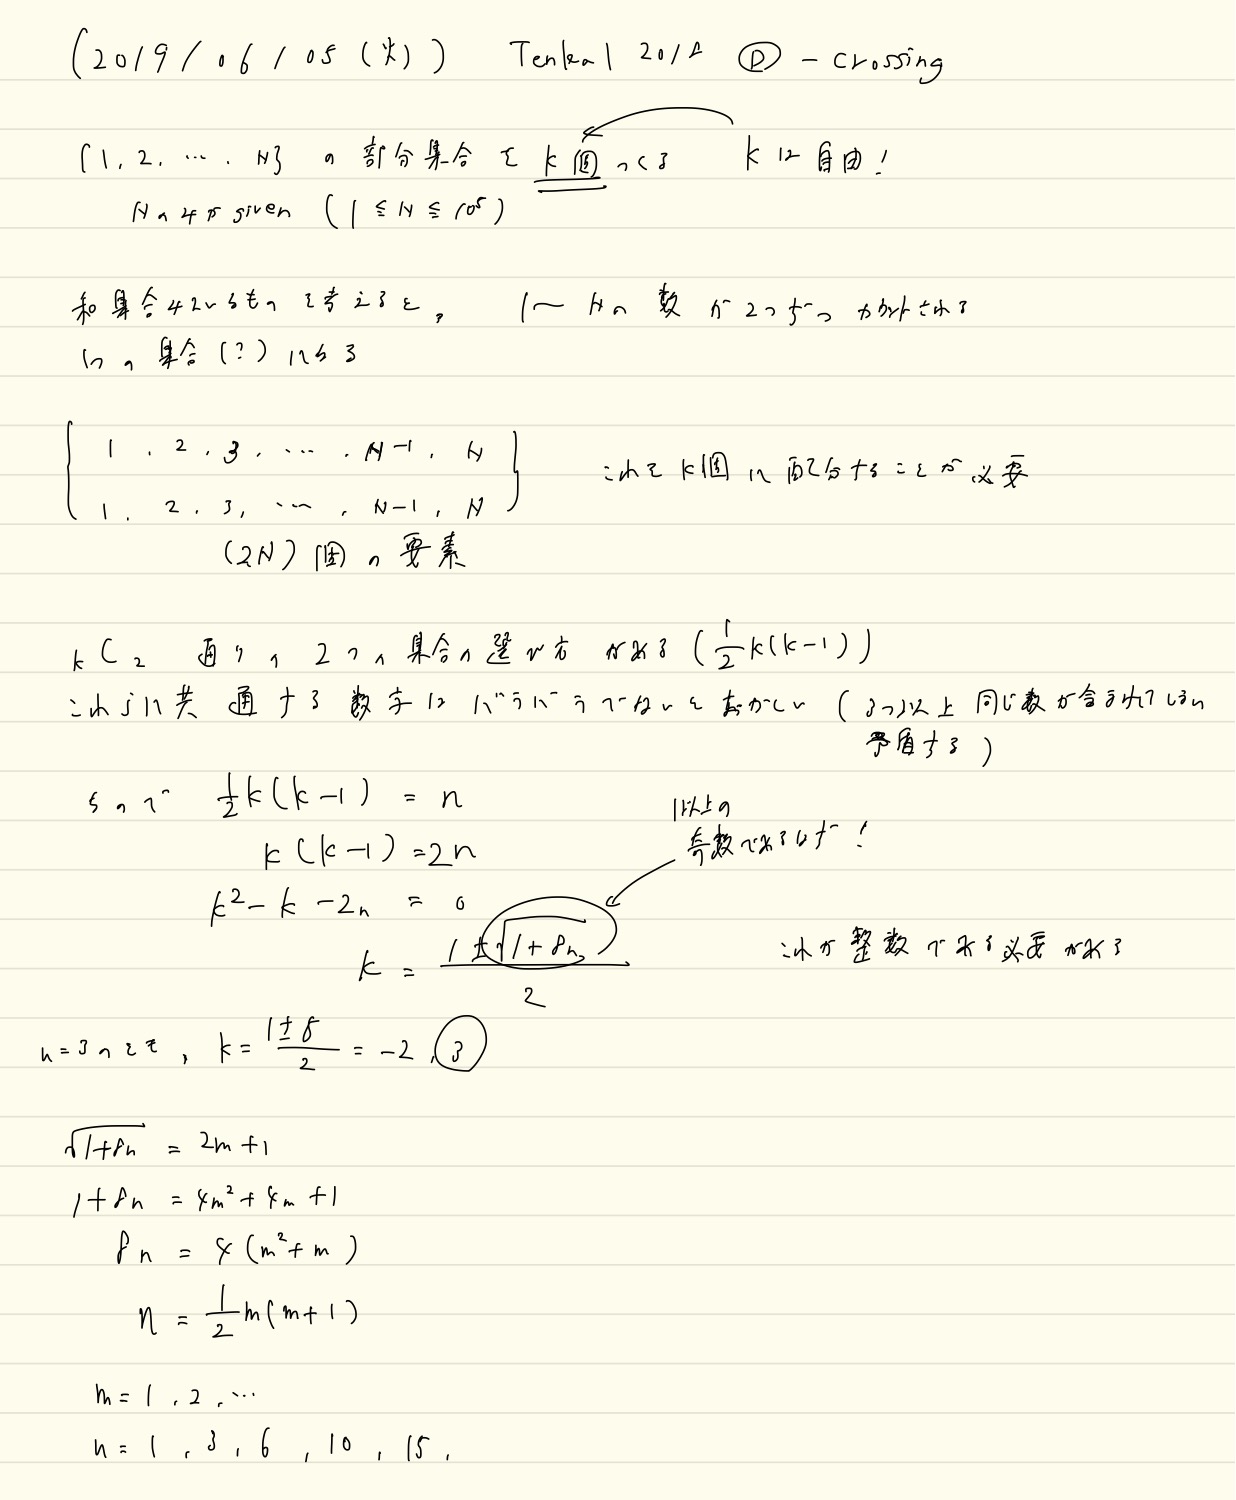 (2019/06/05 (火)) Tenka1 2018 Ⓓ - crossing
{1, 2, ..., N} の部分集合を k個 つくる kは自由!
Nのみが given (1 ≦ N ≦ 10⁵)
和集合みたいなものを考えると, 1〜Nの数が2つずつカウントされる
1つの集合(?)になる
{ 1, 2, 3, ..., N-1, N
1, 2, 3, ..., N-1, N } これをk個に配分することが必要
(2N)個の要素
kC2 通りの2つの集合の選び方がある (1/2 k(k-1))
これらに共通する数字はバラバラでないとおかしい (3つ以上同じ数が含まれてしまい
矛盾する)
なので 1/2 k(k-1) = n
k(k-1) = 2n
k² - k - 2n = 0
k = (1 ± √(1+8n)) / 2
1以上の
奇数であるはず!
これが整数である必要がある
n=3のとき, k = (1±5)/2 = -2, ③
√(1+8n) = 2m+1
1+8n = 4m² + 4m + 1
8n = 4(m²+m)
n = 1/2 m(m+1)
m = 1, 2, ...
n = 1, 3, 6, 10, 15,